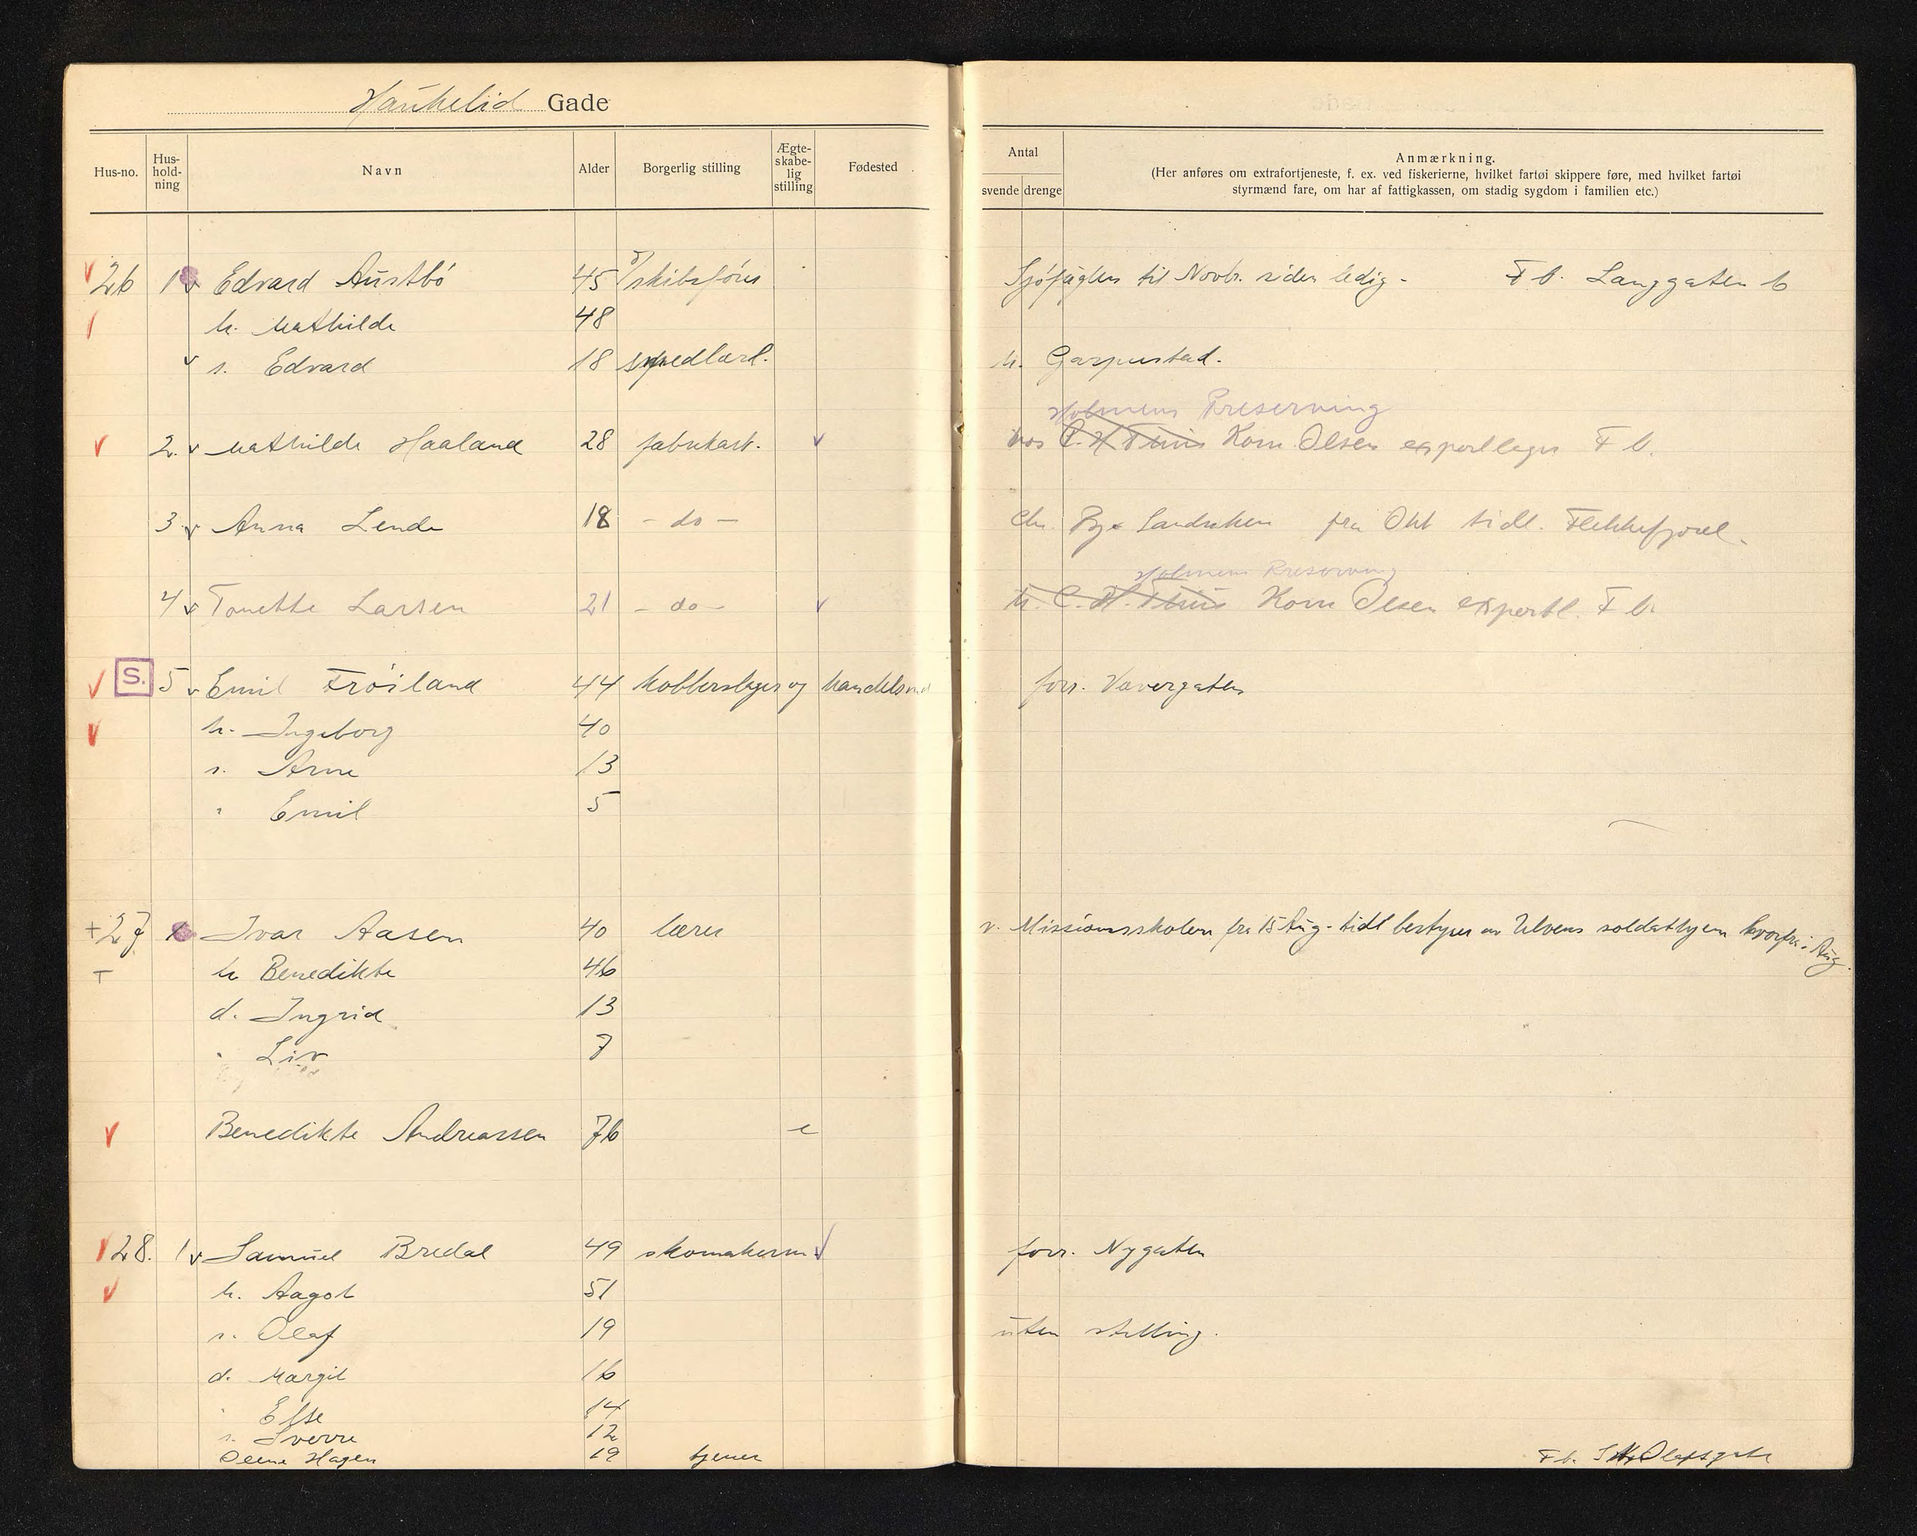 Haukelid Gade
Hus-no. Hus-hold-ning Navn Alder Borgerlig stilling Ægte-skabe-lig stilling Fødested Antal svende drenge Anmærkning.
(Her anføres om extrafortjeneste, f. ex. ved fiskerierne, hvilket fartøi skippere føre, med hvilket fartøi
styrmænd fare, om har af fattigkassen, om stadig sygdom i familien etc.)
26 1 Edvard Austbö 45 skibsförer Sjöfuglen til Novbr. siden ledig - F b. Langgaten 6
h. Mathilde 48
s. Edvard 18 smedlærl. h. Gaspustad.
Holmens Preserving
2. Mathilde Haaland 28 fabrikarb. hos C. H. Thiis Korn Olsen exportlager F b.
3 Anna Lende 18 - do - Chr. Bye Sandviken fra Okt tidl. Flekkefjord.
Holmens Preserving
4 Tonette Larsen 21 - do - h. C. H. Thiis Korn Olsen exportl. F b.
S. 5 Emil Fröiland 44 kobberslager og handelsm forr. Vævergaten
h. Ingeborg 40
s. Arne 13
" Emil 5
+ 27 1 Ivar Aasen 40 lærer v. Missionsskolen fra 15 Aug - tidl bestyrer av Ulvens soldathjem hvorfra i Aug.
h Benedikte 46
d. Ingrid 13
" Liv 7
Benedikte Andreassen 76 e
28. 1 Samuel Bredal 49 skomakerm forr. Nygaten
h. Aagot 51
s. Olaf 19 uten stilling.
d. Margit 16
" Else 14
s. Sverre 12
Olene Hagen 19 tjener F b. St. Olafsgate